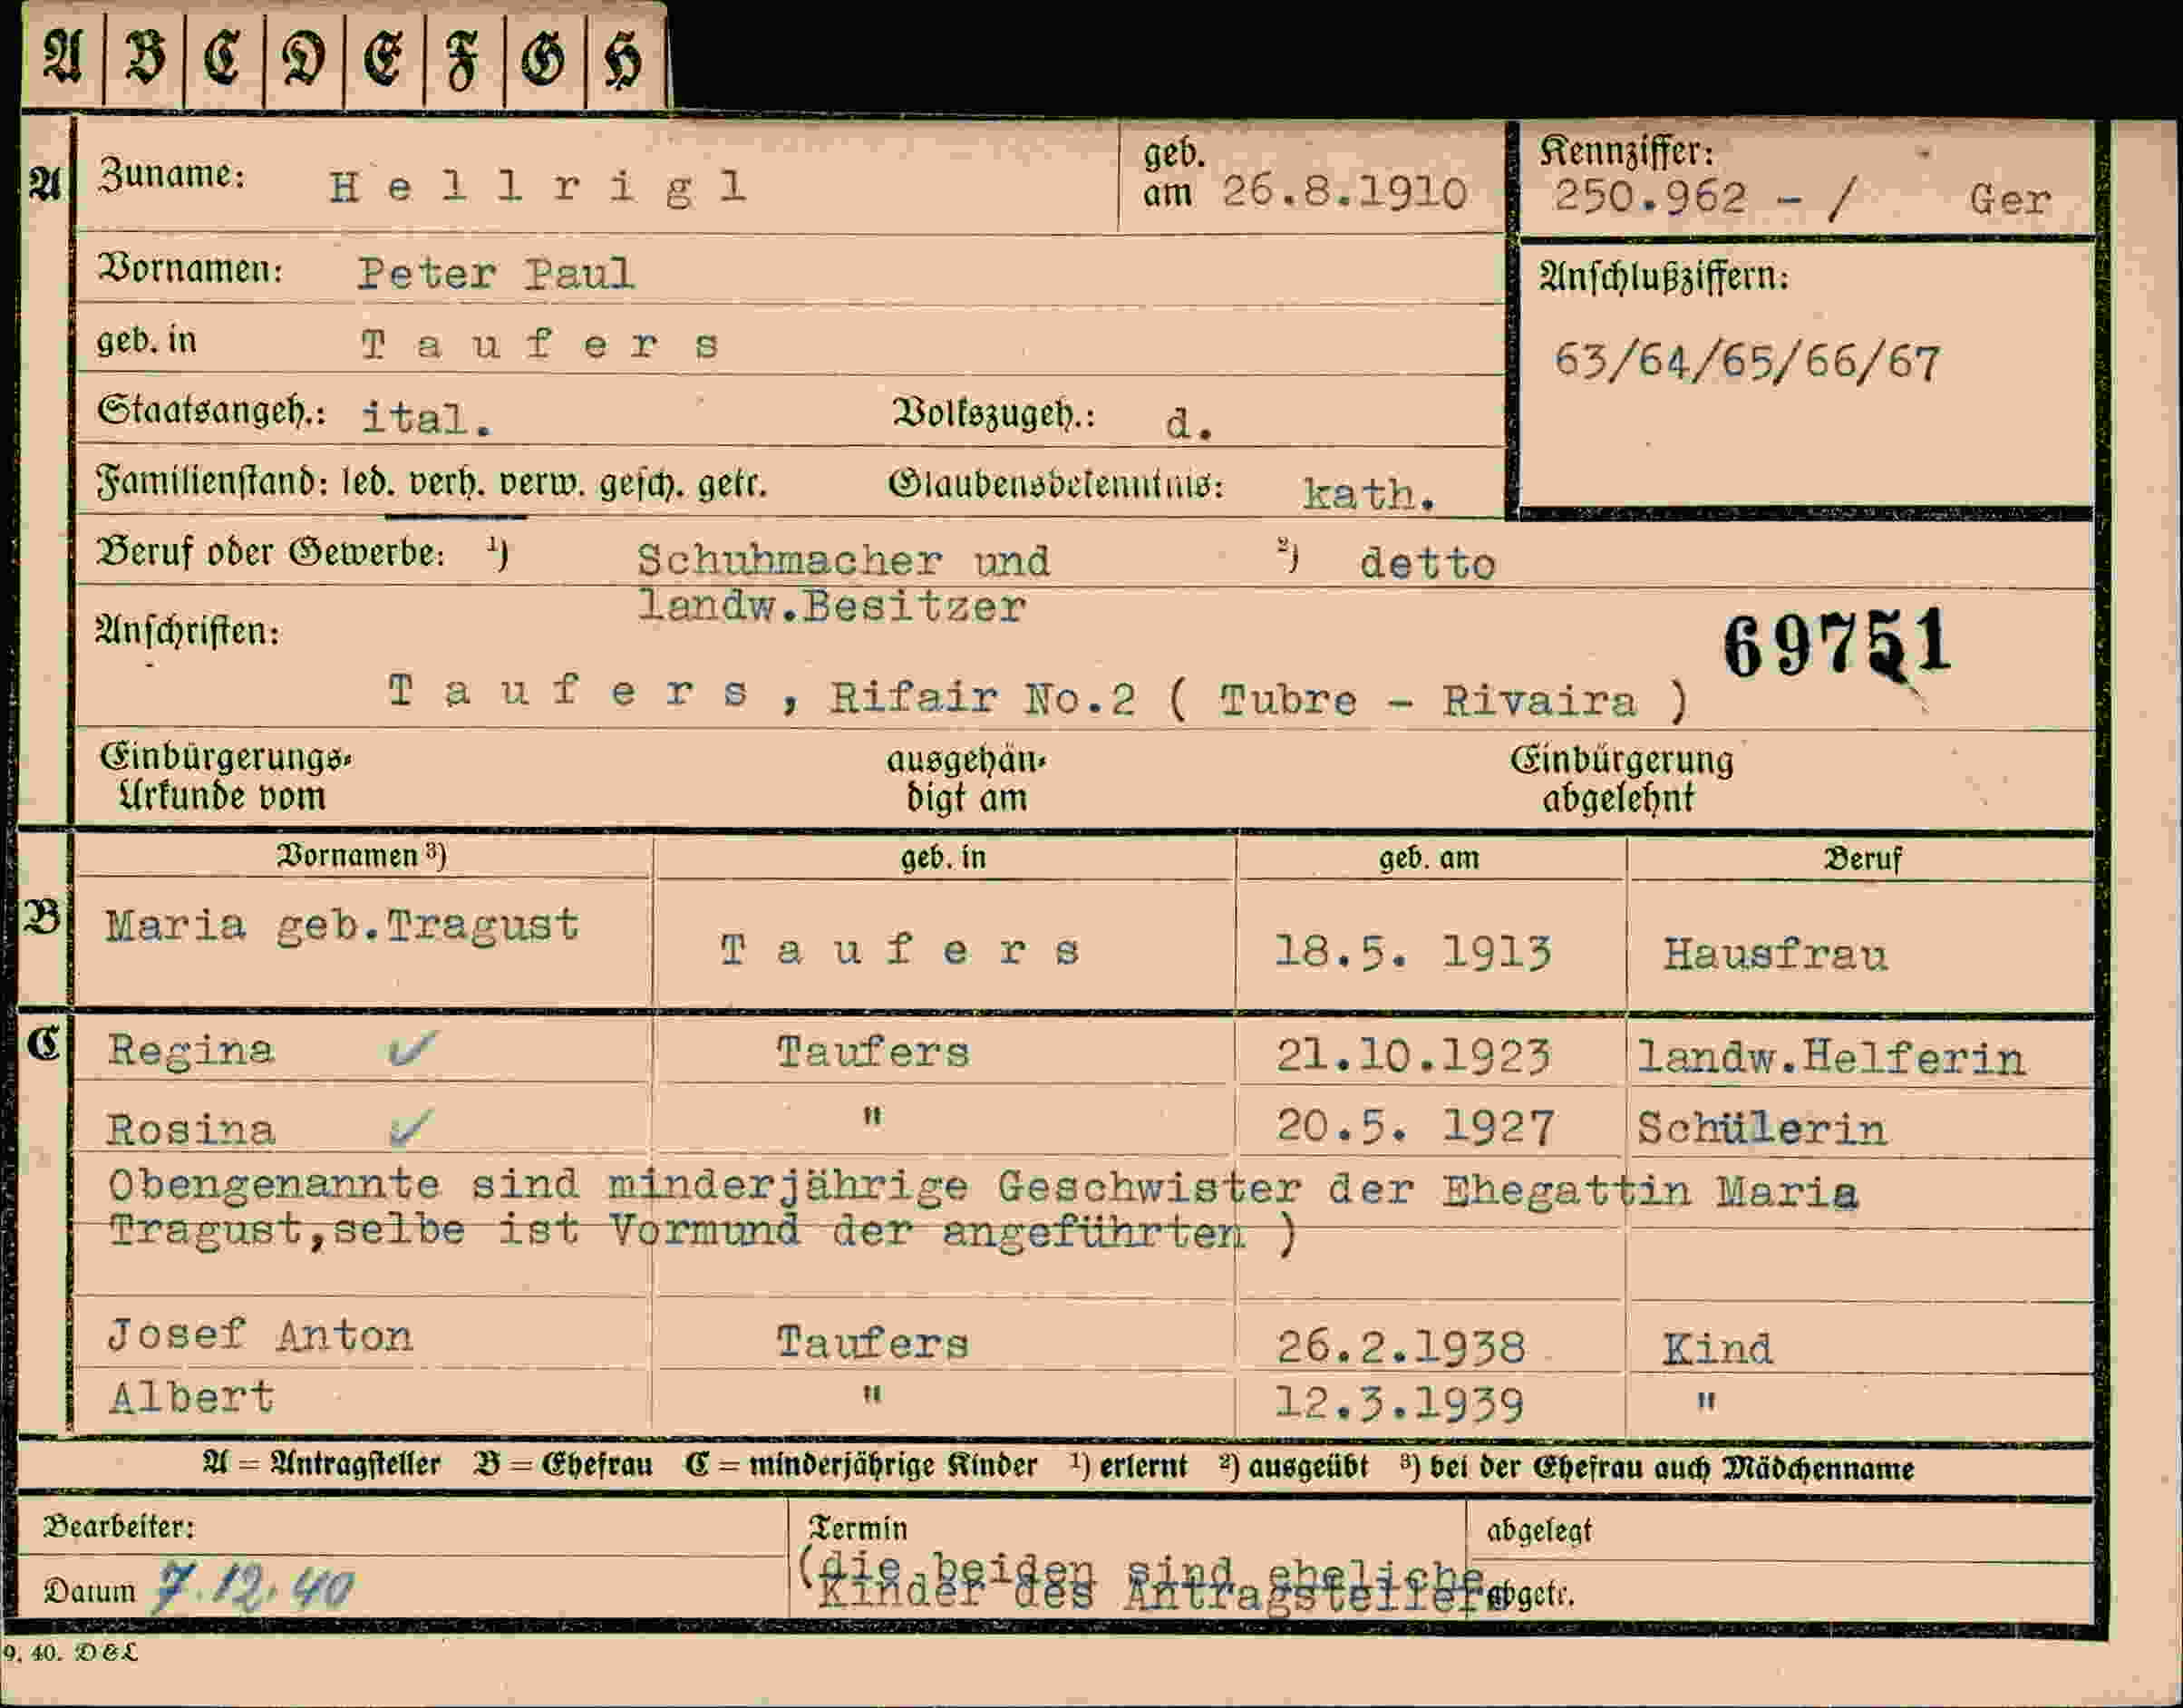 A B C D E F G H
A Zuname: Hellrigl geb. am 26.8.1910 Kennziffer: 250.962 - / Ger
Vornamen: Peter Paul Anschlußziffern:
geb. in Taufers 63/64/65/66/67
Staatsangeh.: ital. Volkszugeh.: d.
Familienstand: led. verh. verw. gesch. getr. Glaubensbekenntnis: kath.
Beruf oder Gewerbe: 1) Schuhmacher und 2) detto
landw.Besitzer
Anschriften: 69751
Taufers, Rifair No.2 ( Tubre - Rivaira )
Einbürgerungs- ausgehän- Einbürgerung
Urkunde vom digt am abgelehnt
Vornamen 3) geb. in geb. am Beruf
B Maria geb.Tragust Taufers 18.5. 1913 Hausfrau
C Regina ✓ Taufers 21.10.1923 landw.Helferin
Rosina ✓ " 20.5. 1927 Schülerin
Obengenannte sind minderjährige Geschwister der Ehegattin Maria
Tragust,selbe ist Vormund der angeführten )
Josef Anton Taufers 26.2.1938 Kind
Albert " 12.3.1939 "
A = Antragsteller B = Ehefrau C = minderjährige Kinder 1) erlernt 2) ausgeübt 3) bei der Ehefrau auch Mädchenname
Bearbeiter: Termin abgelegt
(die beiden sind eheliche
Datum 7.12.40 Kinder des Antragstellers abgetr.
9. 40. D&L